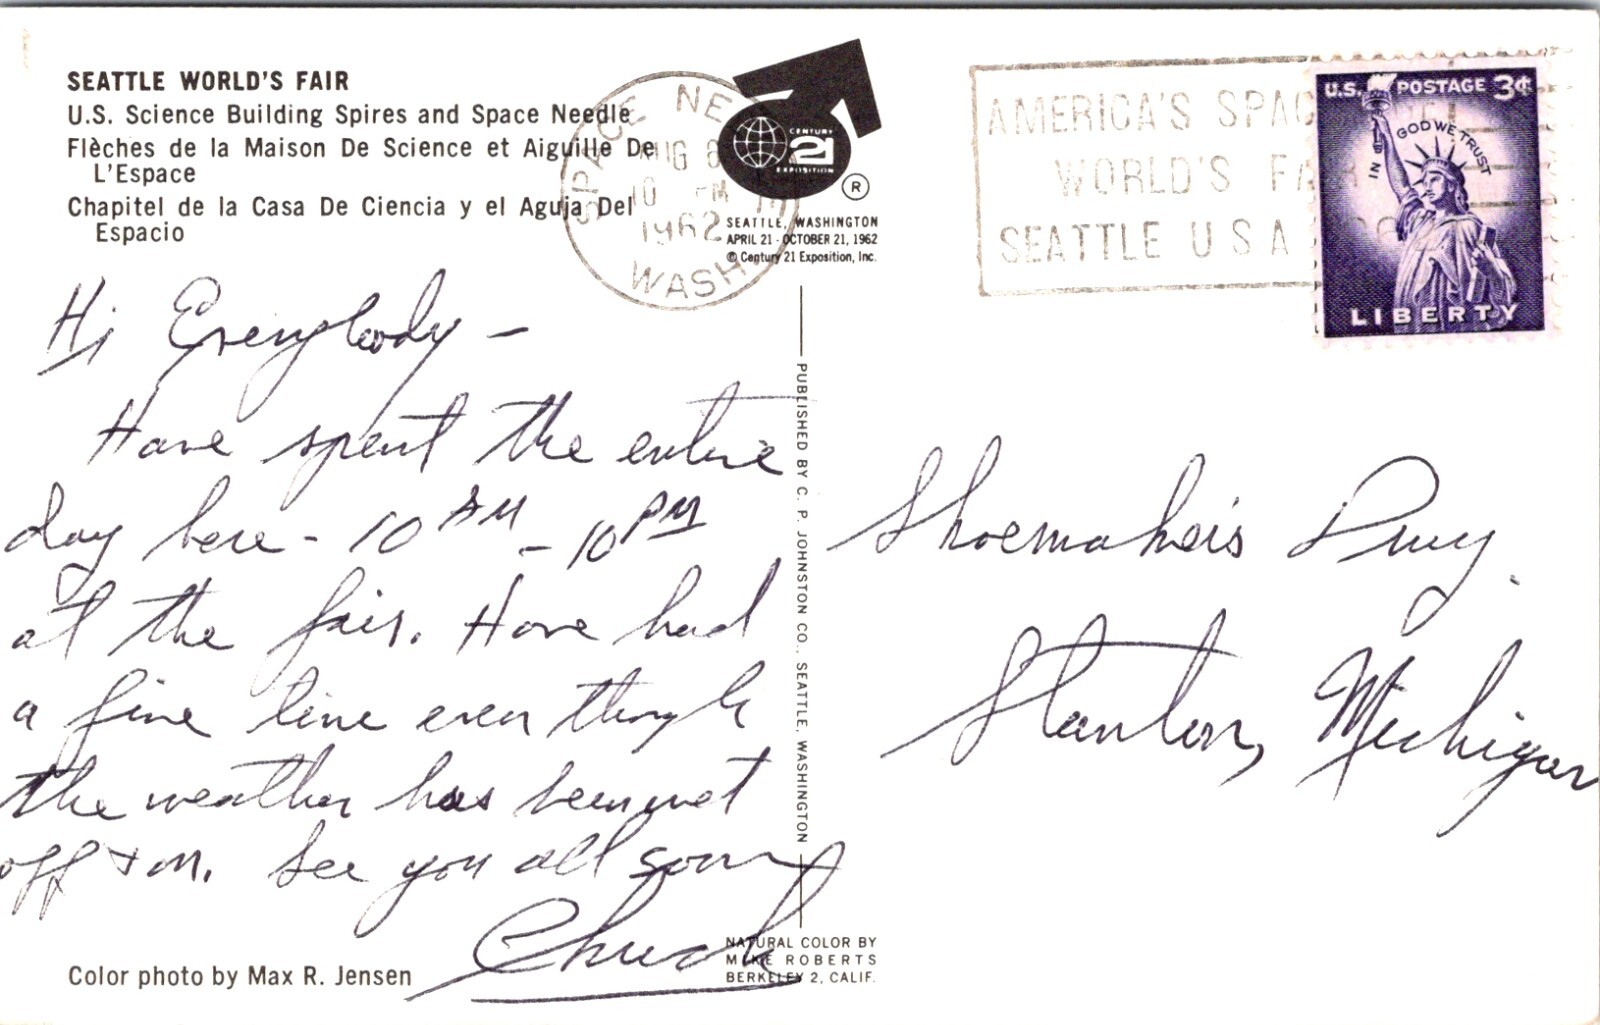 SEATTLE WORLD'S FAIR
U.S. Science Building Spires and Space Needle
Flèches de la Maison De Science et Aiguille De
L'Espace
Chapitel de la Casa De Ciencia y el Aguja Del
Espacio
SPACE NE
AUG 8
10 PM
1962
WASH
CENTURY
21
EXPOSITION
®
SEATTLE, WASHINGTON
APRIL 21 - OCTOBER 21, 1962
© Century 21 Exposition, Inc.
AMERICA'S SPAC
WORLD'S FA
SEATTLE USA
U.S. POSTAGE 3¢
IN GOD WE TRUST
LIBERTY
Hi Everybody -
Have spent the entire
day here - 10 AM - 10 PM
at the fair. Have had
a fine time even though
the weather has been wet
off + on. See you all soon
Chuck
Shoemaker's
Stanton, Michigan
PUBLISHED BY C. P. JOHNSTON CO., SEATTLE, WASHINGTON
NATURAL COLOR BY
MIKE ROBERTS
BERKELEY 2, CALIF.
Color photo by Max R. Jensen